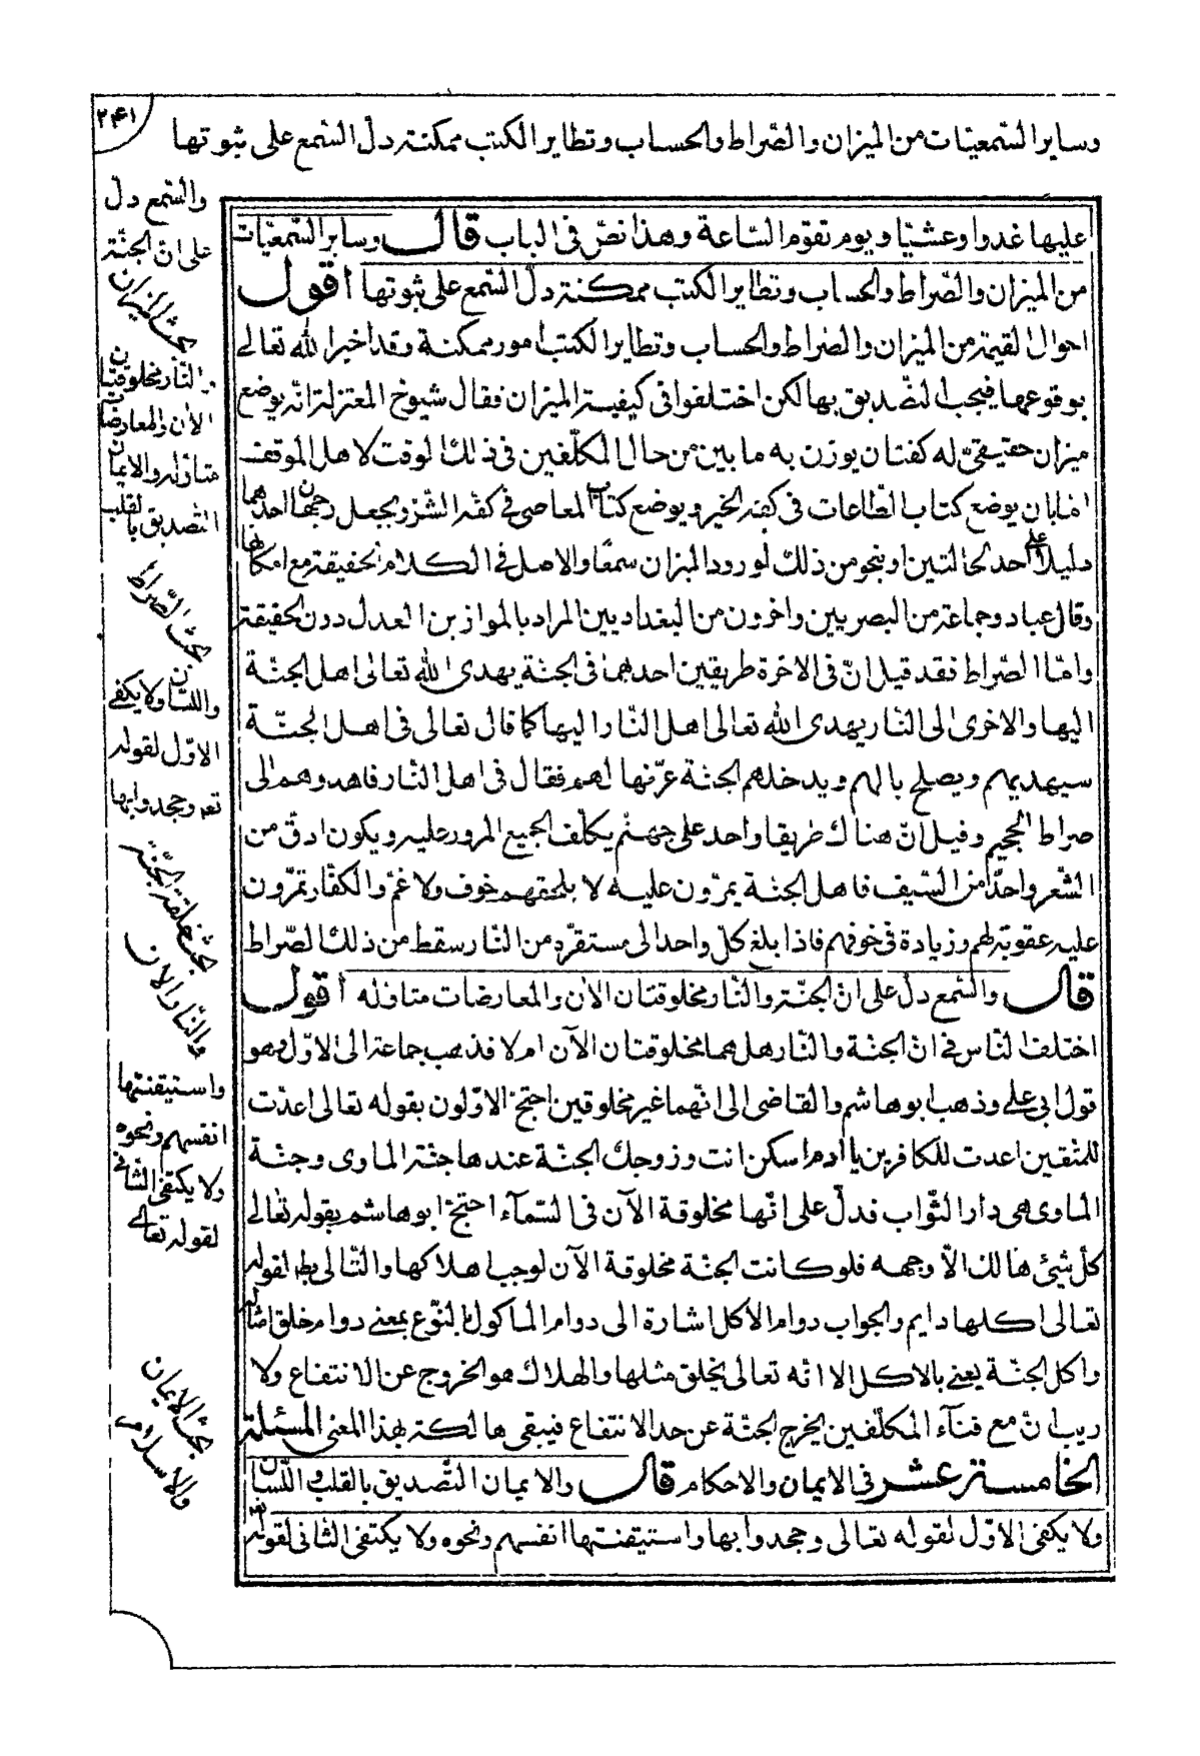 ٢٤١
وساير السّمعيّات من الميزان والصّراط والحساب وتطاير الكتب ممكنة دلّ السّمع على ثبوتها
عليها غدوا وعشيّا ويوم تقوم السّاعة وهذا نصّ فى الباب قال وساير السّمعيّات
من الميزان والصّراط والحساب وتطاير الكتب ممكنة دلّ السّمع على ثبوتها اقول
احوال القيمة من الميزان والصّراط والحساب وتطاير الكتب امور ممكنة وقد اخبر الله تعالى
بوقوعها فيجب التّصديق بها لكن اختلفوا فى كيفيّة الميزان فقال شيوخ المعتزلة انّه يوضع
ميزان حقيقىّ له كفتان يوزن به ما بين من حال المكلّفين فى ذلك الوقت لاهل الموقف
امّا بان يوضع كتاب الطّاعات فى كفة الخير ويوضع كتاب المعاصى فى كفّة الشّرّ ويجعل رجحان احدهما
دليلا على احد الحالتين او بنحو من ذلك لورود الميزان سمعًا والاصل فى الكلام الحقيقة مع امكانها
وقال عباد وجماعة من البصريين واخرون من البغداديين المراد بالموازين العدل دون الحقيقة
وامّا الصّراط فقد قيل انّ فى الاخرة طريقين احدهما فى الجنّة يهدى الله تعالى اهل الجنّة
اليها والاخرى الى النّار يهدى الله تعالى اهل النّار اليها كما قال تعالى فى اهل الجنّة
سيهديهم ويصلح بالهم ويدخلهم الجنّة عرّفها لهم فقال فى اهل النّار فاهدوهم الى
صراط الجحيم وقيل انّ هناك طريقا واحدا على جهنّم يكلّف الجميع المرور عليه ويكون ادقّ من
الشّعر واحدّ من السّيف فاهل الجنّة يمرّون عليه لا يلحقهم خوف ولا غمّ والكفّار يمرّون
عليه عقوبة لهم وزيادة فى خوفهم فاذا بلغ كلّ واحد الى مستقرّه من النّار سقط من ذلك الصّراط
قال والسّمع دلّ على انّ الجنّة والنّار مخلوقتان الان والمعارضات متاوّلة أقول
اختلف النّاس فى انّ الجنّة والنّار هل هما مخلوقتان الآن ام لا فذهب جماعة الى الاوّل وهو
قول ابى على وذهب ابو هاشم والقاضى الى انّهما غير مخلوقتين احتجّ الاوّلون بقوله تعالى اعدّت
للمتّقين اعدت للكافرين يا ادم اسكن انت وزوجك الجنّة عندها جنّة الماوى وجنّة
الماوى هى دار الثّواب فدلّ على انّها مخلوقة الآن فى السّمآء احتجّ ابو هاشم بقوله تعالى
كلّ شىء هالك الاّ وجهه فلو كانت الجنّة مخلوقة الآن لوجب هلاكها والتّالى بط لقوله
تعالى اكلها دايم والجواب دوام الاكل اشارة الى دوام الماكول بالنّوع بمعنى دوام خلق امثاله
واكل الجنّة يفنى بالاكل الا انّه تعالى يخلق مثلها والهلاك هو الخروج عن الانتفاع ولا
ريب انّ مع فنآء المكلّفين يخرج الجنّة عن حد الانتفاع فيبقى هالكة بهذا المعنى المسئلة
الخامسة عشر فى الايمان والاحكام قال والايمان التّصديق بالقلب واللّسان
ولا يكفى الاوّل لقوله تعالى وجحدوا بها واستيقنتها انفسهم ونحوه ولا يكتفى الثّانى لقوله
والسّمع دلّ
على انّ الجنّة
بحث الميزان
والنّار مخلوقتان
الان والمعارضات
متاوّلة والايمان
التّصديق بالقلب
بحث الصّراط
واللّسان ولا يكفى
الاوّل لقوله
تعه وجحدوا بها
بحث خلقة الجنّة
والنّار الان
واستيقنتها
انفسهم ونحوه
ولا يكتفى الثّانى
لقوله تعالى
بحث الايمان
والاسلام